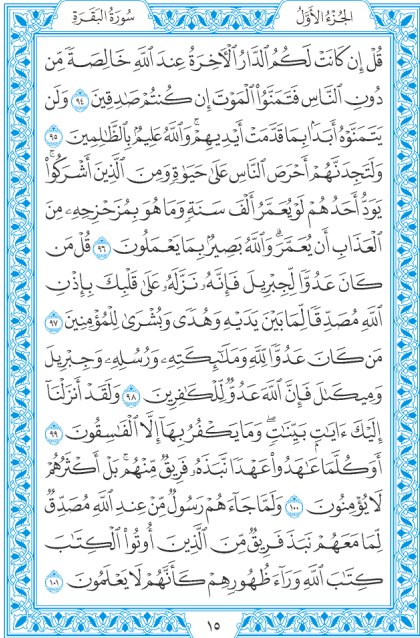 الجُزْءُ الأَوَّلُ
سُورَةُ البَقَرَةِ
قُلْ إِن كَانَتْ لَكُمُ الدَّارُ الْآخِرَةُ عِندَ اللَّهِ خَالِصَةً مِّن
دُونِ النَّاسِ فَتَمَنَّوُا الْمَوْتَ إِن كُنتُمْ صَادِقِينَ ٩٤ وَلَن
يَتَمَنَّوْهُ أَبَدًا بِمَا قَدَّمَتْ أَيْدِيهِمْ ۚ وَاللَّهُ عَلِيمٌ بِالظَّالِمِينَ ٩٥
وَلَتَجِدَنَّهُمْ أَحْرَصَ النَّاسِ عَلَىٰ حَيَوٰةٍ وَمِنَ الَّذِينَ أَشْرَكُوا ۚ
يَوَدُّ أَحَدُهُمْ لَوْ يُعَمَّرُ أَلْفَ سَنَةٍ وَمَا هُوَ بِمُزَحْزِحِهِۦ مِنَ
الْعَذَابِ أَن يُعَمَّرَ ۗ وَاللَّهُ بَصِيرٌ بِمَا يَعْمَلُونَ ٩٦ قُلْ مَن
كَانَ عَدُوًّا لِّجِبْرِيلَ فَإِنَّهُۥ نَزَّلَهُۥ عَلَىٰ قَلْبِكَ بِإِذْنِ
اللَّهِ مُصَدِّقًا لِّمَا بَيْنَ يَدَيْهِ وَهُدًى وَبُشْرَىٰ لِلْمُؤْمِنِينَ ٩٧
مَن كَانَ عَدُوًّا لِّلَّهِ وَمَلَٰٓئِكَتِهِۦ وَرُسُلِهِۦ وَجِبْرِيلَ
وَمِيكَىٰلَ فَإِنَّ اللَّهَ عَدُوٌّ لِّلْكَافِرِينَ ٩٨ وَلَقَدْ أَنزَلْنَا
إِلَيْكَ ءَايَٰتٍ بَيِّنَٰتٍ ۖ وَمَا يَكْفُرُ بِهَا إِلَّا الْفَاسِقُونَ ٩٩
أَوَكُلَّمَا عَٰهَدُوا عَهْدًا نَّبَذَهُۥ فَرِيقٌ مِّنْهُم ۚ بَلْ أَكْثَرُهُمْ
لَا يُؤْمِنُونَ ١٠٠ وَلَمَّا جَاءَهُمْ رَسُولٌ مِّنْ عِندِ اللَّهِ مُصَدِّقٌ
لِّمَا مَعَهُمْ نَبَذَ فَرِيقٌ مِّنَ الَّذِينَ أُوتُوا الْكِتَٰبَ
كِتَٰبَ اللَّهِ وَرَاءَ ظُهُورِهِمْ كَأَنَّهُمْ لَا يَعْلَمُونَ ١٠١
١٥